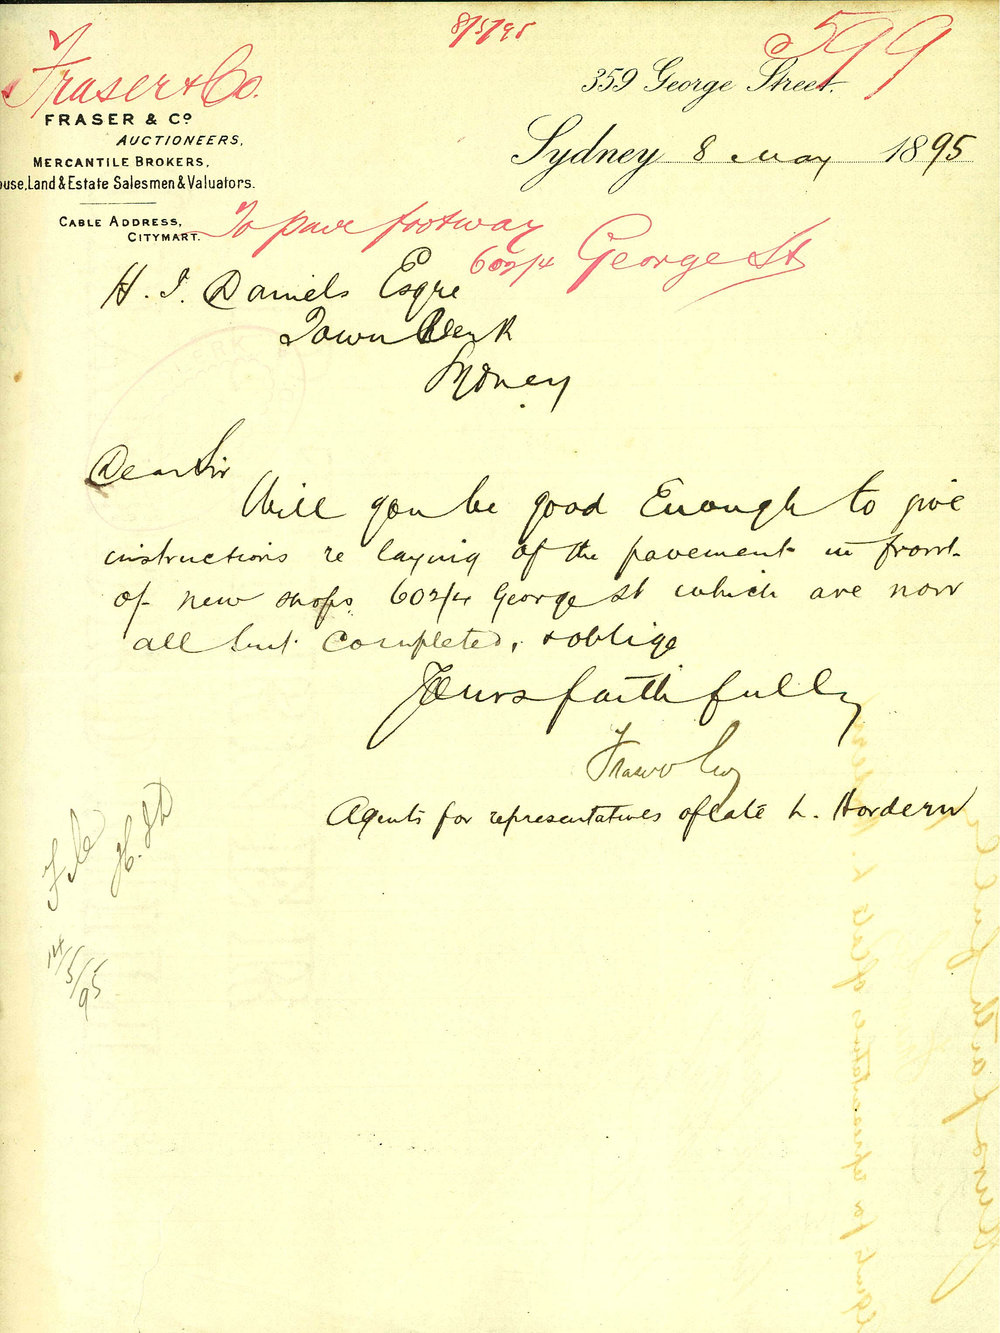 8/5/95
599
Fraser & Co.
FRASER & Co
AUCTIONEERS,
MERCANTILE BROKERS,
ouse, Land & Estate Salesmen & Valuators.
CABLE ADDRESS,
CITYMART.
359 George Street.
Sydney 8 May 1895
To pave footway
602/4 George St
H. J. Daniels Esqre
Town Clerk
Sydney
Dear Sir
Will you be good Enough to give
instructions re laying of the pavement in front
of new shops 602/4 George St which are now
all but completed, & oblige
Yours faithfully
Fraser & Co
Agents for representatives of late L. Hordern
File
14/5/95